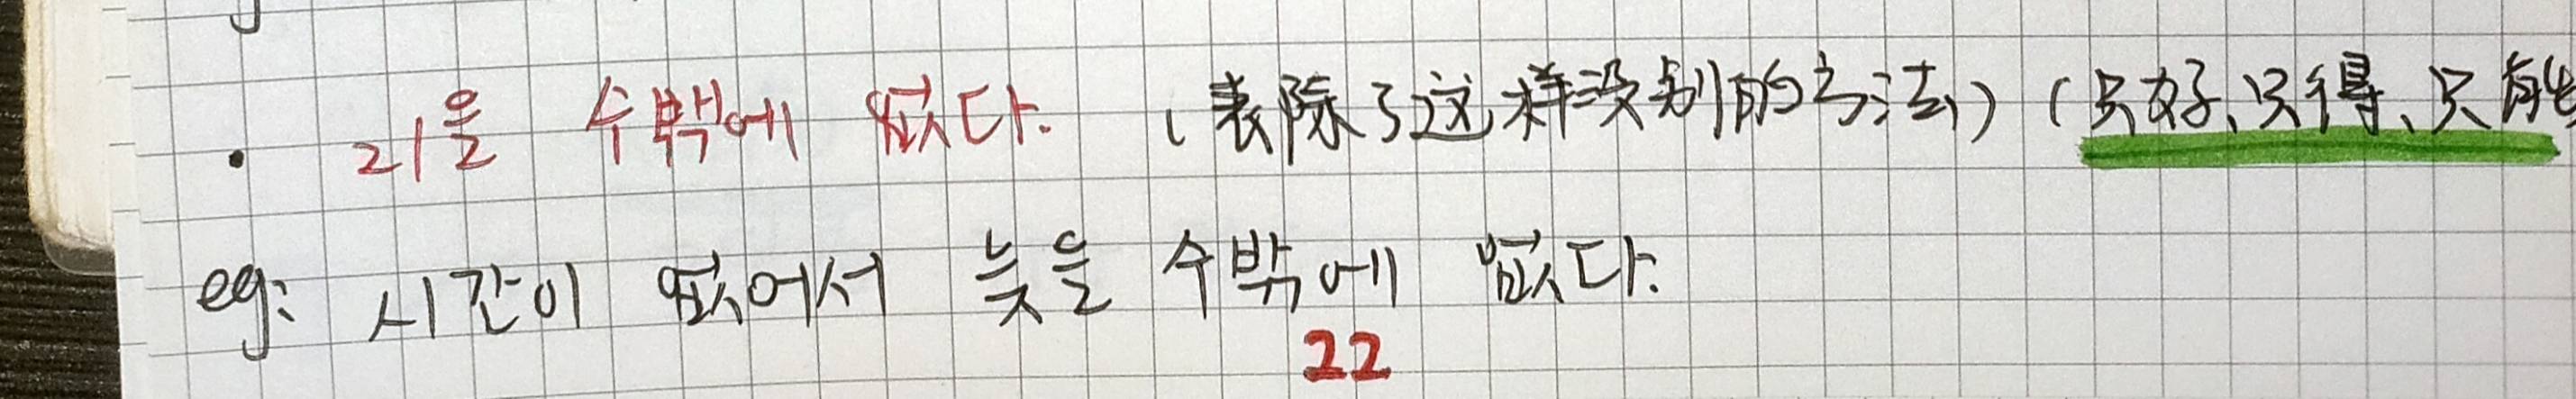 • ㄹ/을 수밖에 없다. (表除了这样没别的方法) (只好、只得、只能
eg: 시간이 없어서 늦을 수밖에 없다.
22